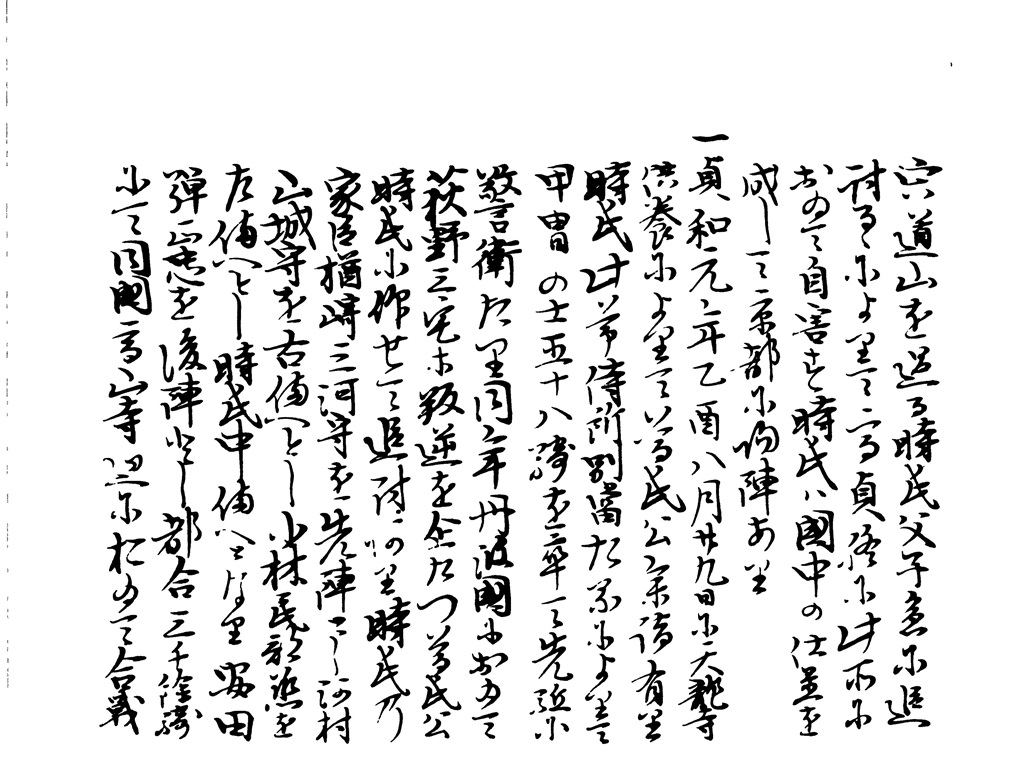 宍道山を過る時氏父子急に追
討るによりて高貞終に此所に
おゐて自害す時氏ハ國中の仕置を
成して京都に帰陣あり
一貞和元年乙酉八月廿九日に天龍寺
供養によりて尊氏公参詣有り
時氏此節侍所別当たるによりて
甲冑の士五十八騎を率て先駈に
警衛たり同年丹波國におゐて
荻野三宅等叛逆を企たつ尊氏公
時氏に仰せて追討あり時氏乃
家臣楢崎三河守を先陣とし河村
山城守を右備へとし小林民部丞を
左備へとし時氏中備へとなり安田
弾正忠を後陣とし都合三千餘騎
にて同國高山寺辺に於ゐて合戦